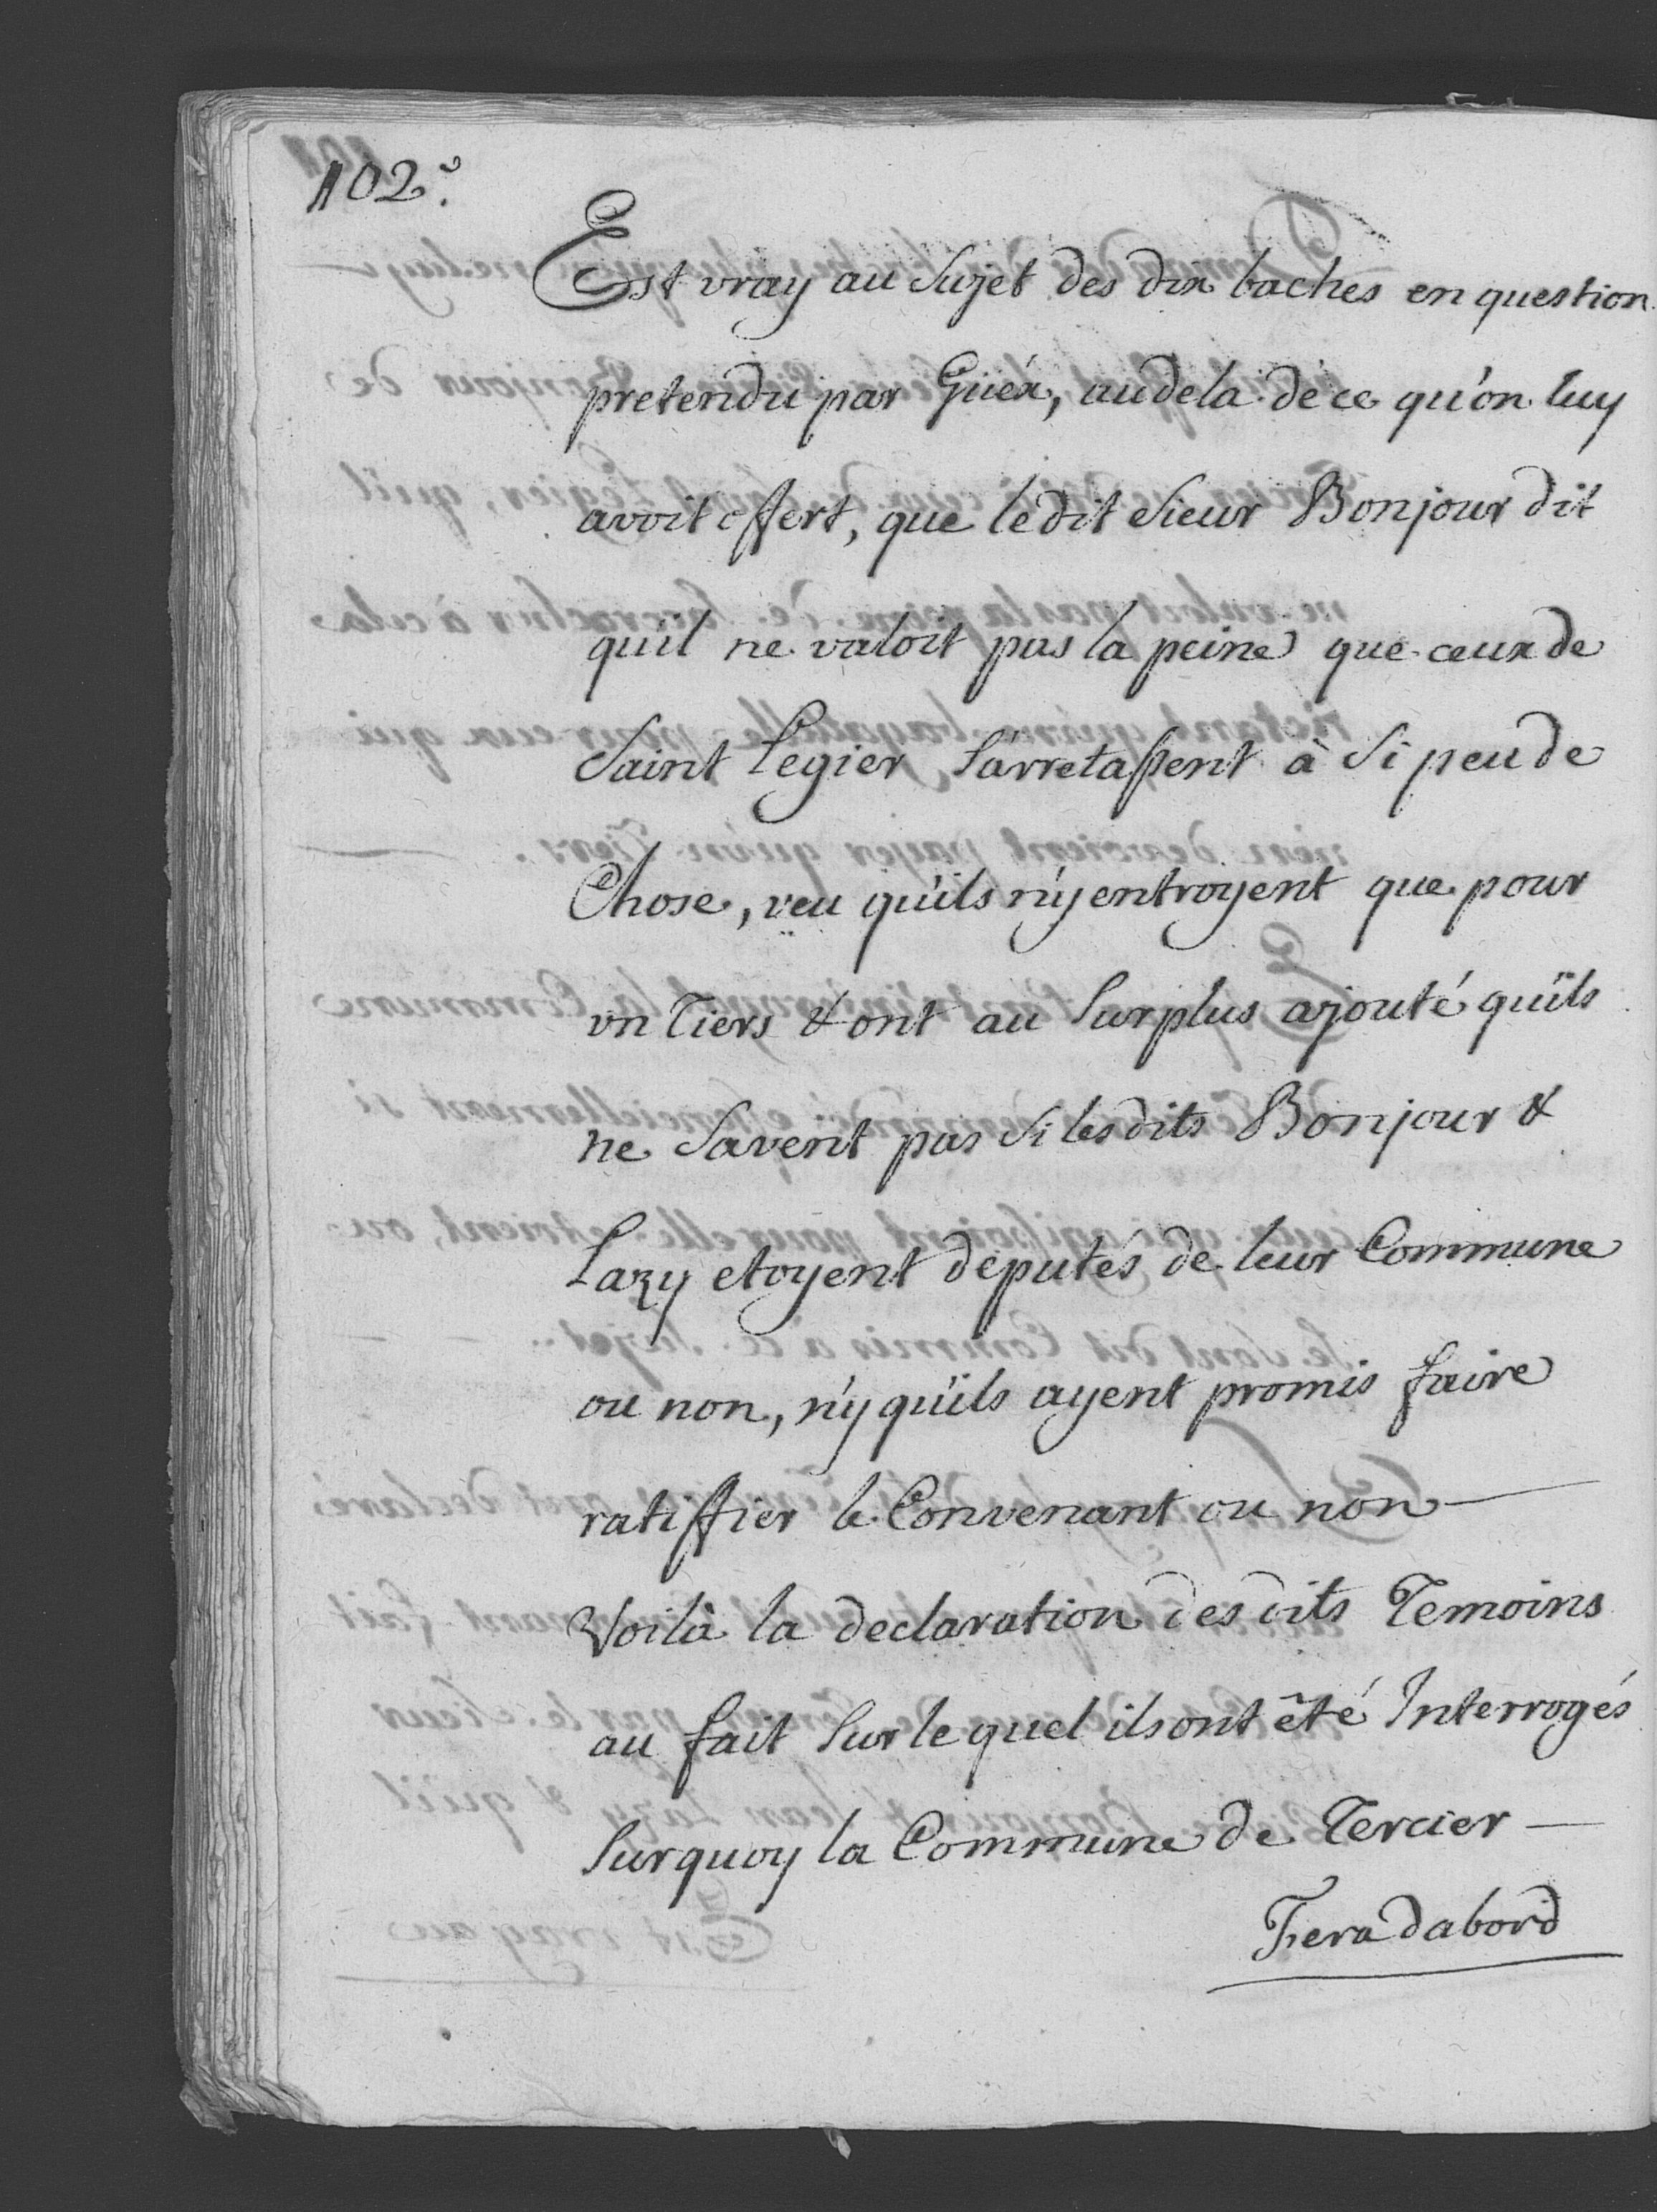 102.
Est vray au Sujet des dix baches en question
pretendu par Guéx, audela de ce qu'on luy
avoit offert, que ledit Sieur Bonjour dit
qu'il ne valoit pas la peine que ceux de
Saint Legier S'arretassent à Si peu de
Chose, veu qu'ils n'y entroyent que pour
vn Tiers & ont au Surplus ajouté qu'ils
ne Savent pas Si lesdits Bonjour &
Lazy etoyent députés de leur Commune
ou non, n'y qu'ils ayent promis faire
ratiffier le Convenant ou non —
Voilà la declaration desdits Temoins
au fait Sur lequel ils ont êté Interrogés
Surquoy la Commune de Tercier —
Fera dabord